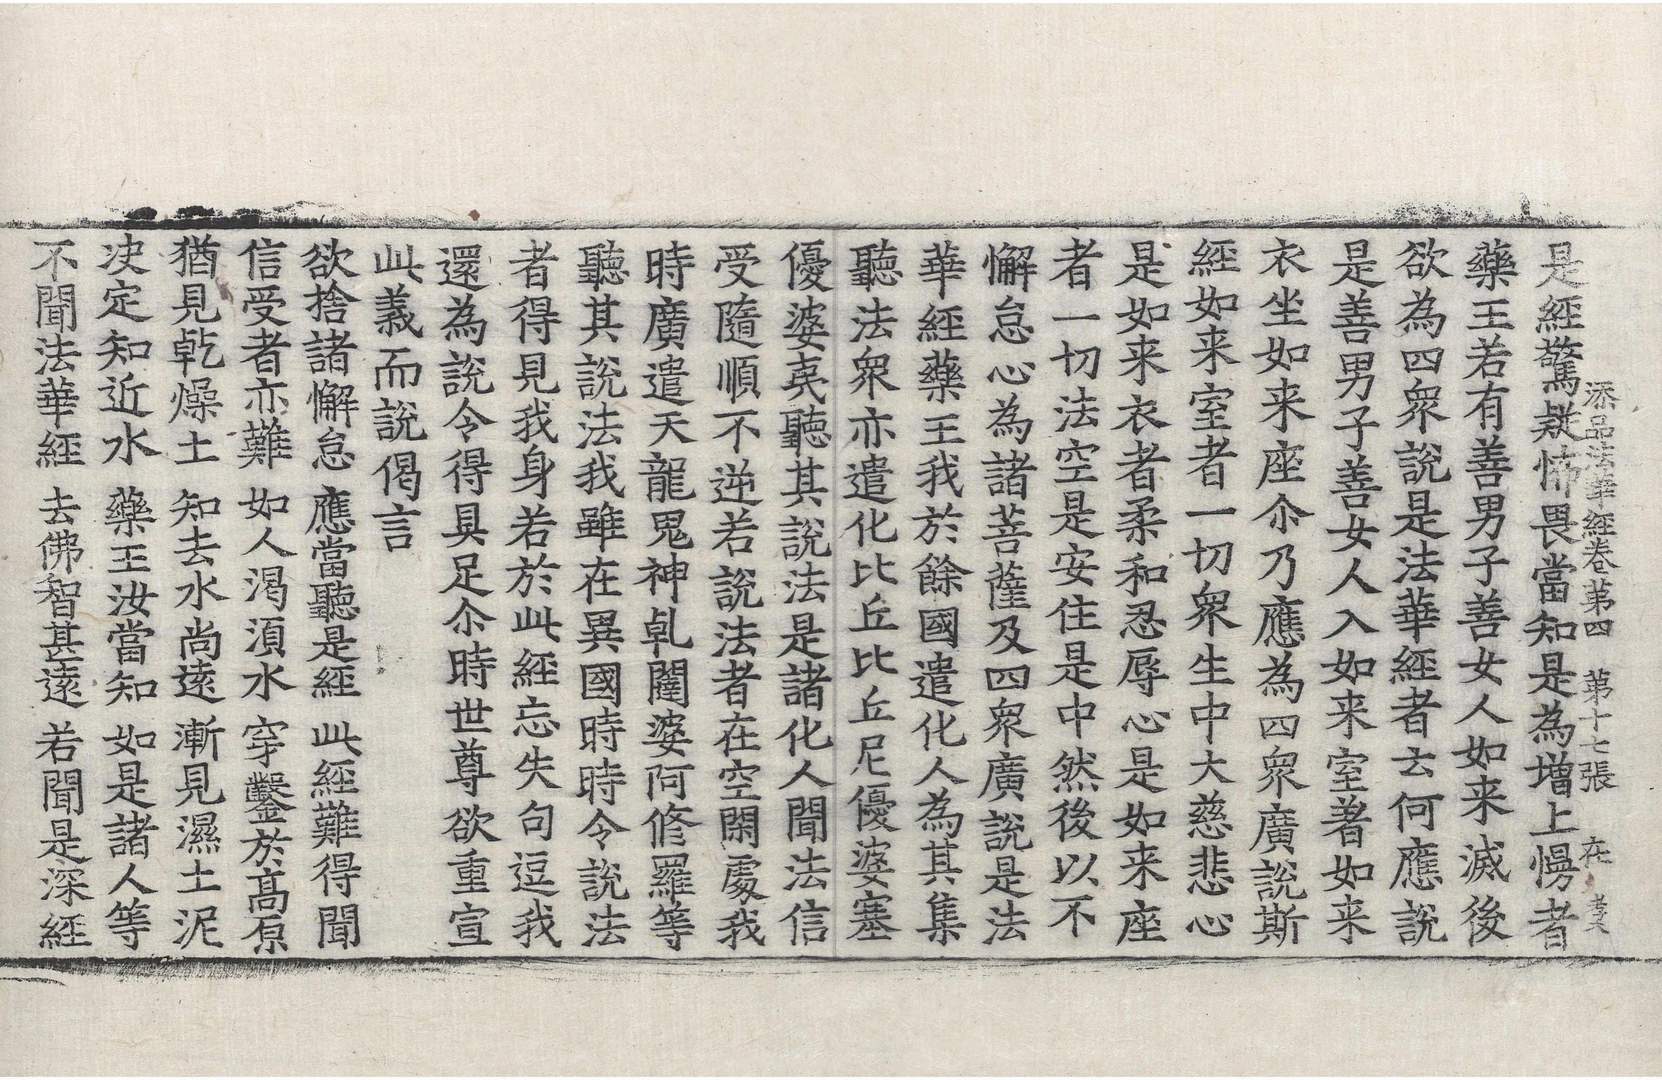 添品法華經卷第四 第十七張 在
是經驚疑怖畏當知是為增上慢者
藥王若有善男子善女人如来滅後
欲為四眾說是法華經者云何應說
是善男子善女人入如来室著如来
衣坐如来座尒乃應為四眾廣說斯
經如来室者一切眾生中大慈悲心
是如来衣者柔和忍辱心是如来座
者一切法空是安住是中然後以不
懈怠心為諸菩薩及四眾廣說是法
華經藥王我於餘國遣化人為其集
聽法眾亦遣化比丘比丘尼優婆塞
優婆夷聽其說法是諸化人聞法信
受隨順不逆若說法者在空閑處我
時廣遣天龍鬼神乹闥婆阿修羅等
聽其說法我雖在異國時時令說法
者得見我身若於此經忘失句逗我
還為說令得具足尒時世尊欲重宣
此義而說偈言
欲捨諸懈怠 應當聽是經 此經難得聞
信受者亦難 如人渴湏水 穿鑿於高原
猶見乾燥土 知去水尚遠 漸見濕土泥
决定知近水 藥王汝當知 如是諸人等
不聞法華經 去佛智甚遠 若聞是深經